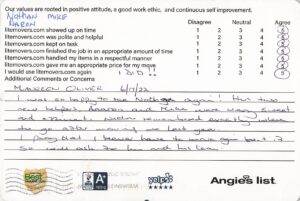 Our values are rooted in positive attitude, a good work ethic, and continuous self improvement.
NATHAN MIKE
AARON
Disagree Neutral Agree
Litemovers.com showed up on time 1 2 3 4 5
Litemovers.com was polite and helpful 1 2 3 4 5
Litemovers.com kept on task 1 2 3 4 5
Litemovers.com finished the job in an appropriate amount of time 1 2 3 4 5
Litemovers.com handled my items in a respectful manner 1 2 3 4 5
Litemovers.com gave me an appropriate price for my move 1 2 3 4 5
I would use Litemovers.com again I DID!! 1 2 3 4 5
Additional Comments or Concerns
MAUREEN OLIVER 6/17/22
I was so happy to see Nathan again!! His two
new helpers Aaron and Mike were very sweet
and Nathan remembered exactly where
to go after moving me last year.
I pray that I never have to move again but if
so will ask for him and his team
A+
yelp
Angie's list